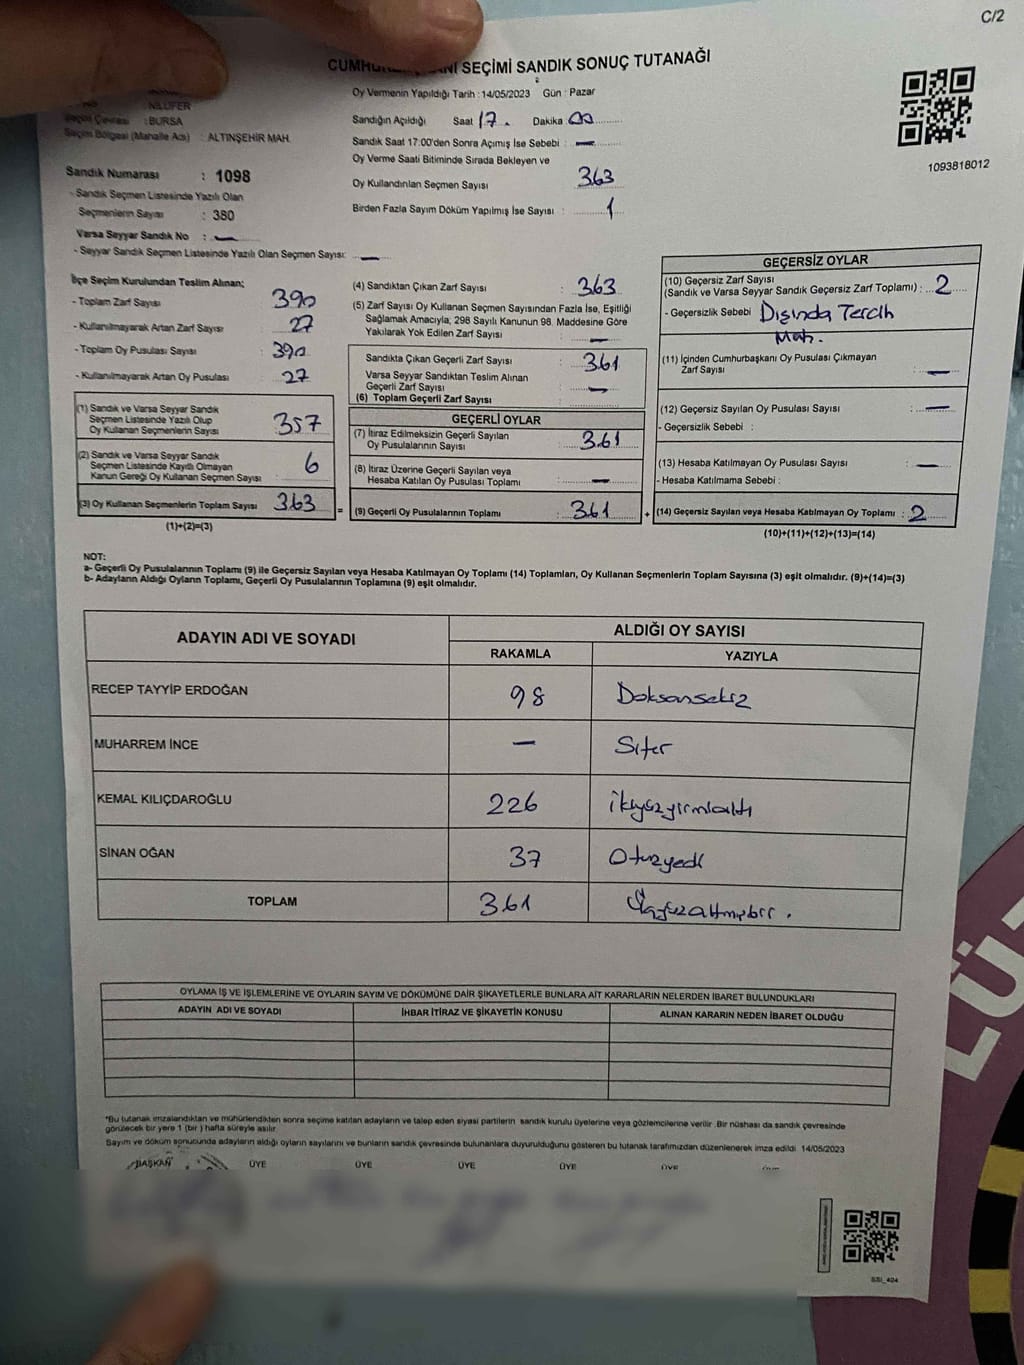 C/2
SEÇİMİ SANDIK SONUÇ TUTANAĞI
Oy Vermenin Yapıldığı Tarih : 14/05/2023 Gün : Pazar
NİLÜFER
Seçim Çevresi : BURSA
Seçim Bölgesi (Mahalle Adı) : ALTINŞEHİR MAH.
Sandığın Açıldığı Saat 17. Dakika 00
Sandık Saat 17:00'den Sonra Açımış İse Sebebi : —
Oy Verme Saati Bitiminde Sırada Bekleyen ve
Oy Kullandırılan Seçmen Sayısı 363
Birden Fazla Sayım Döküm Yapılmış İse Sayısı : 1
1093818012
Sandık Numarası : 1098
- Sandık Seçmen Listesinde Yazılı Olan
Seçmenlerin Sayısı : 380
Varsa Seyyar Sandık No : —
- Seyyar Sandık Seçmen Listesinde Yazılı Olan Seçmen Sayısı: —
İlçe Seçim Kurulundan Teslim Alınan;
- Toplam Zarf Sayısı : 390
- Kullanılmayarak Artan Zarf Sayısı : 27
- Toplam Oy Pusulası Sayısı : 390
- Kullanılmayarak Artan Oy Pusulası : 27
(1) Sandık ve Varsa Seyyar Sandık
Seçmen Listesinde Yazılı Olup
Oy Kullanan Seçmenlerin Sayısı : 357
(2) Sandık ve Varsa Seyyar Sandık
Seçmen Listesinde Kayıtlı Olmayan
Kanun Gereği Oy Kullanan Seçmen Sayısı : 6
(3) Oy Kullanan Seçmenlerin Toplam Sayısı : 363
(1)+(2)=(3)
=
(4) Sandıktan Çıkan Zarf Sayısı : 363
(5) Zarf Sayısı Oy Kullanan Seçmen Sayısından Fazla İse, Eşitliği
Sağlamak Amacıyla; 298 Sayılı Kanunun 98. Maddesine Göre
Yakılarak Yok Edilen Zarf Sayısı : —
Sandıkta Çıkan Geçerli Zarf Sayısı : 361
Varsa Seyyar Sandıktan Teslim Alınan
Geçerli Zarf Sayısı : —
(6) Toplam Geçerli Zarf Sayısı :
GEÇERLİ OYLAR
(7) İtiraz Edilmeksizin Geçerli Sayılan
Oy Pusulalarının Sayısı : 361
(8) İtiraz Üzerine Geçerli Sayılan veya
Hesaba Katılan Oy Pusulası Toplamı : —
(9) Geçerli Oy Pusulalarının Toplamı : 361
+
GEÇERSİZ OYLAR
(10) Geçersiz Zarf Sayısı
(Sandık ve Varsa Seyyar Sandık Geçersiz Zarf Toplamı) : 2
- Geçersizlik Sebebi : Dışında Tercih
Müh.
(11) İçinden Cumhurbaşkanı Oy Pusulası Çıkmayan
Zarf Sayısı : —
(12) Geçersiz Sayılan Oy Pusulası Sayısı : —
- Geçersizlik Sebebi :
(13) Hesaba Katılmayan Oy Pusulası Sayısı : —
- Hesaba Katılmama Sebebi :
(14) Geçersiz Sayılan veya Hesaba Katılmayan Oy Toplamı : 2
(10)+(11)+(12)+(13)=(14)
NOT:
a- Geçerli Oy Pusulalarının Toplamı (9) ile Geçersiz Sayılan veya Hesaba Katılmayan Oy Toplamı (14) Toplamları, Oy Kullanan Seçmenlerin Toplam Sayısına (3) eşit olmalıdır. (9)+(14)=(3)
b- Adayların Aldığı Oyların Toplamı, Geçerli Oy Pusulalarının Toplamına (9) eşit olmalıdır.
ADAYIN ADI VE SOYADI
ALDIĞI OY SAYISI
RAKAMLA YAZIYLA
RECEP TAYYİP ERDOĞAN 98 Doksansekiz
MUHARREM İNCE — Sıfır
KEMAL KILIÇDAROĞLU 226 ikiyüzyirmialtı
SİNAN OĞAN 37 Otuzyedi
TOPLAM 361 Üçyüzaltmışbir.
OYLAMA İŞ VE İŞLEMLERİNE VE OYLARIN SAYIM VE DÖKÜMÜNE DAİR ŞİKAYETLERLE BUNLARA AİT KARARLARIN NELERDEN İBARET BULUNDUKLARI
ADAYIN ADI VE SOYADI İHBAR İTİRAZ VE ŞİKAYETİN KONUSU ALINAN KARARIN NEDEN İBARET OLDUĞU
*Bu tutanak imzalandıktan ve mühürlendikten sonra seçime katılan adayların ve talep eden siyasi partilerin sandık kurulu üyelerine veya gözlemcilerine verilir. Bir nüshası da sandık çevresinde
görülecek bir yere 1 (bir ) hafta süreyle asılır.
Sayım ve döküm sonucunda adayların aldığı oyların sayılarını ve bunların sandık çevresinde bulunanlara duyurulduğunu gösteren bu tutanak tarafımızdan düzenlenerek imza edildi 14/05/2023
BAŞKAN ÜYE ÜYE ÜYE ÜYE ÜYE
SSI_404
LÜ